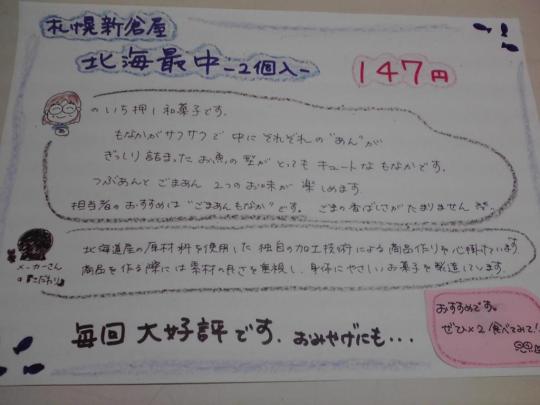 札幌新倉屋
北海最中-2個入-
147円
のいち押し和菓子です。
もなかがサクサクで 中に それぞれの "あん"が
ぎっしり詰まった お魚の型が とっても キュートな もなかです。
つぶあんと ごまあん 2つのお味が 楽しめます
担当者の おすすめは "ごまあんもなか" です。 ごまの香ばしさが たまりません
メーカーさん
の『こだわり』
北海道産の原材料を使用した 独自の加工技術による 商品作りを心掛けています
商品を作る際には素材の良さを重視し、身体にやさしいお菓子を製造しています。
毎回 大好評です. おみやげにも・・・
おすすめです。
ぜひ×2 食べてみて!